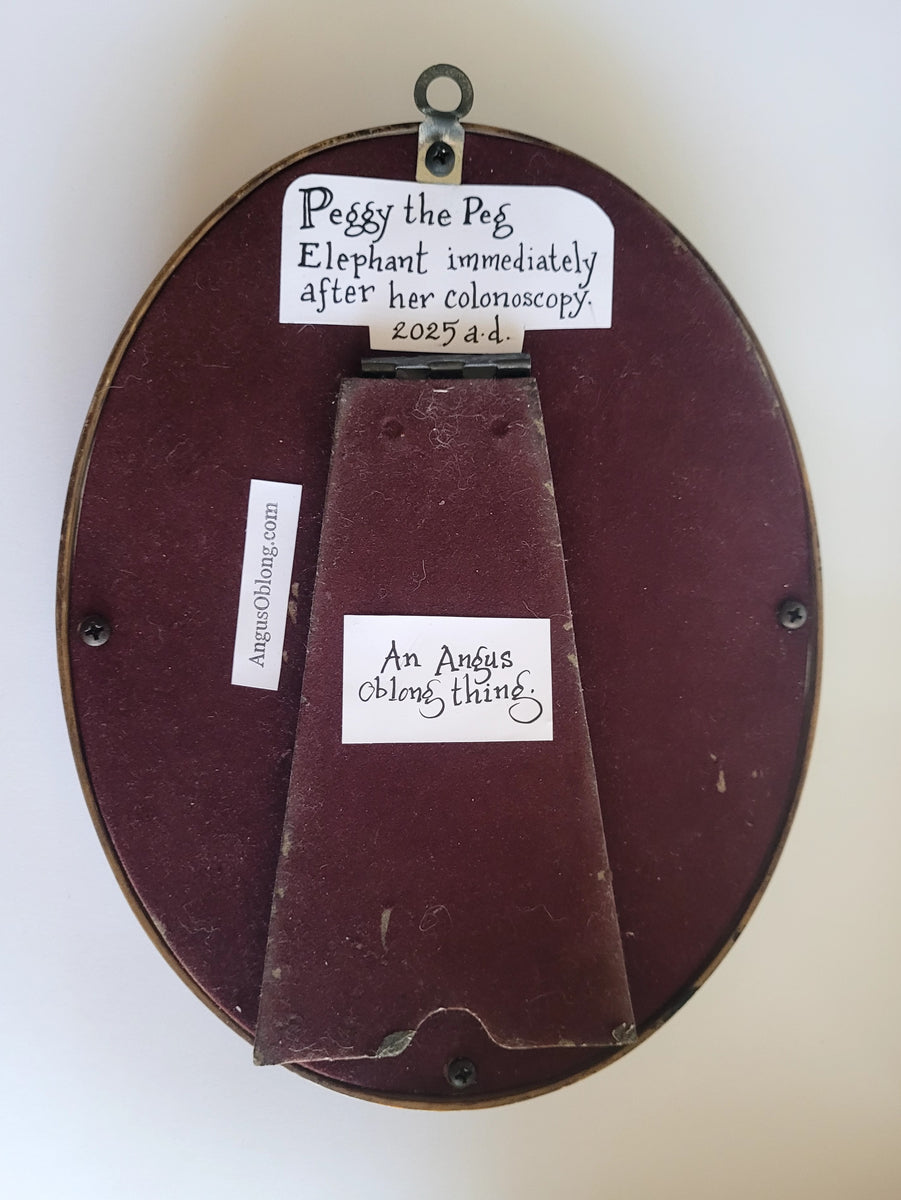 Peggy the Peg
Elephant immediately
after her colonoscopy.
2025 a.d.
AngusOblong.com
An Angus
Oblong thing.